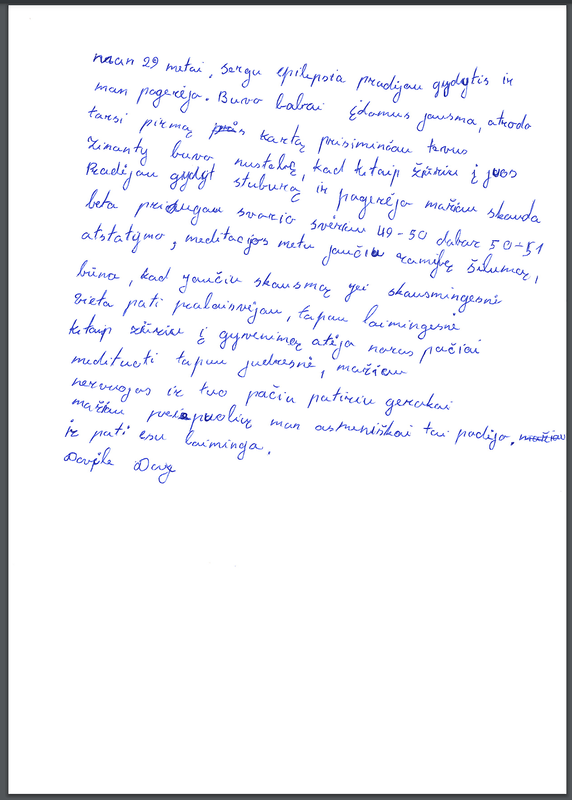 man 29 metai, sergu epilepsia pradijau gydytis ir
man pagerėjo. Buvo labai įdomus jausmas, atrodo
tarsi pirmą kartą prisiminčau tėvus
žinanty buvo nustebę, kad kitaip žiūriu į juos
Pradijau gydyt stuburą ir pagerėjo mažiau skauda
beta priaugau svorio svėriau 49-50 dabar 50-51
atstatymo, meditacijos metu jaučiu ramybę šilumą,
būna, kad jaučiu skausmą jei skausmingesnė
vieta pati pralaisvėjau, tapau laimingesnė
kitaip žiūriu į gyvenimą atėjo noras pačiai
medituoti tapau judresnė, mažiau
nervuojas ir tuo pačiu patiriu gerokai
mažiau priepuolių man asmeniškai tai padėjo. mažiau
ir pati esu laiminga.